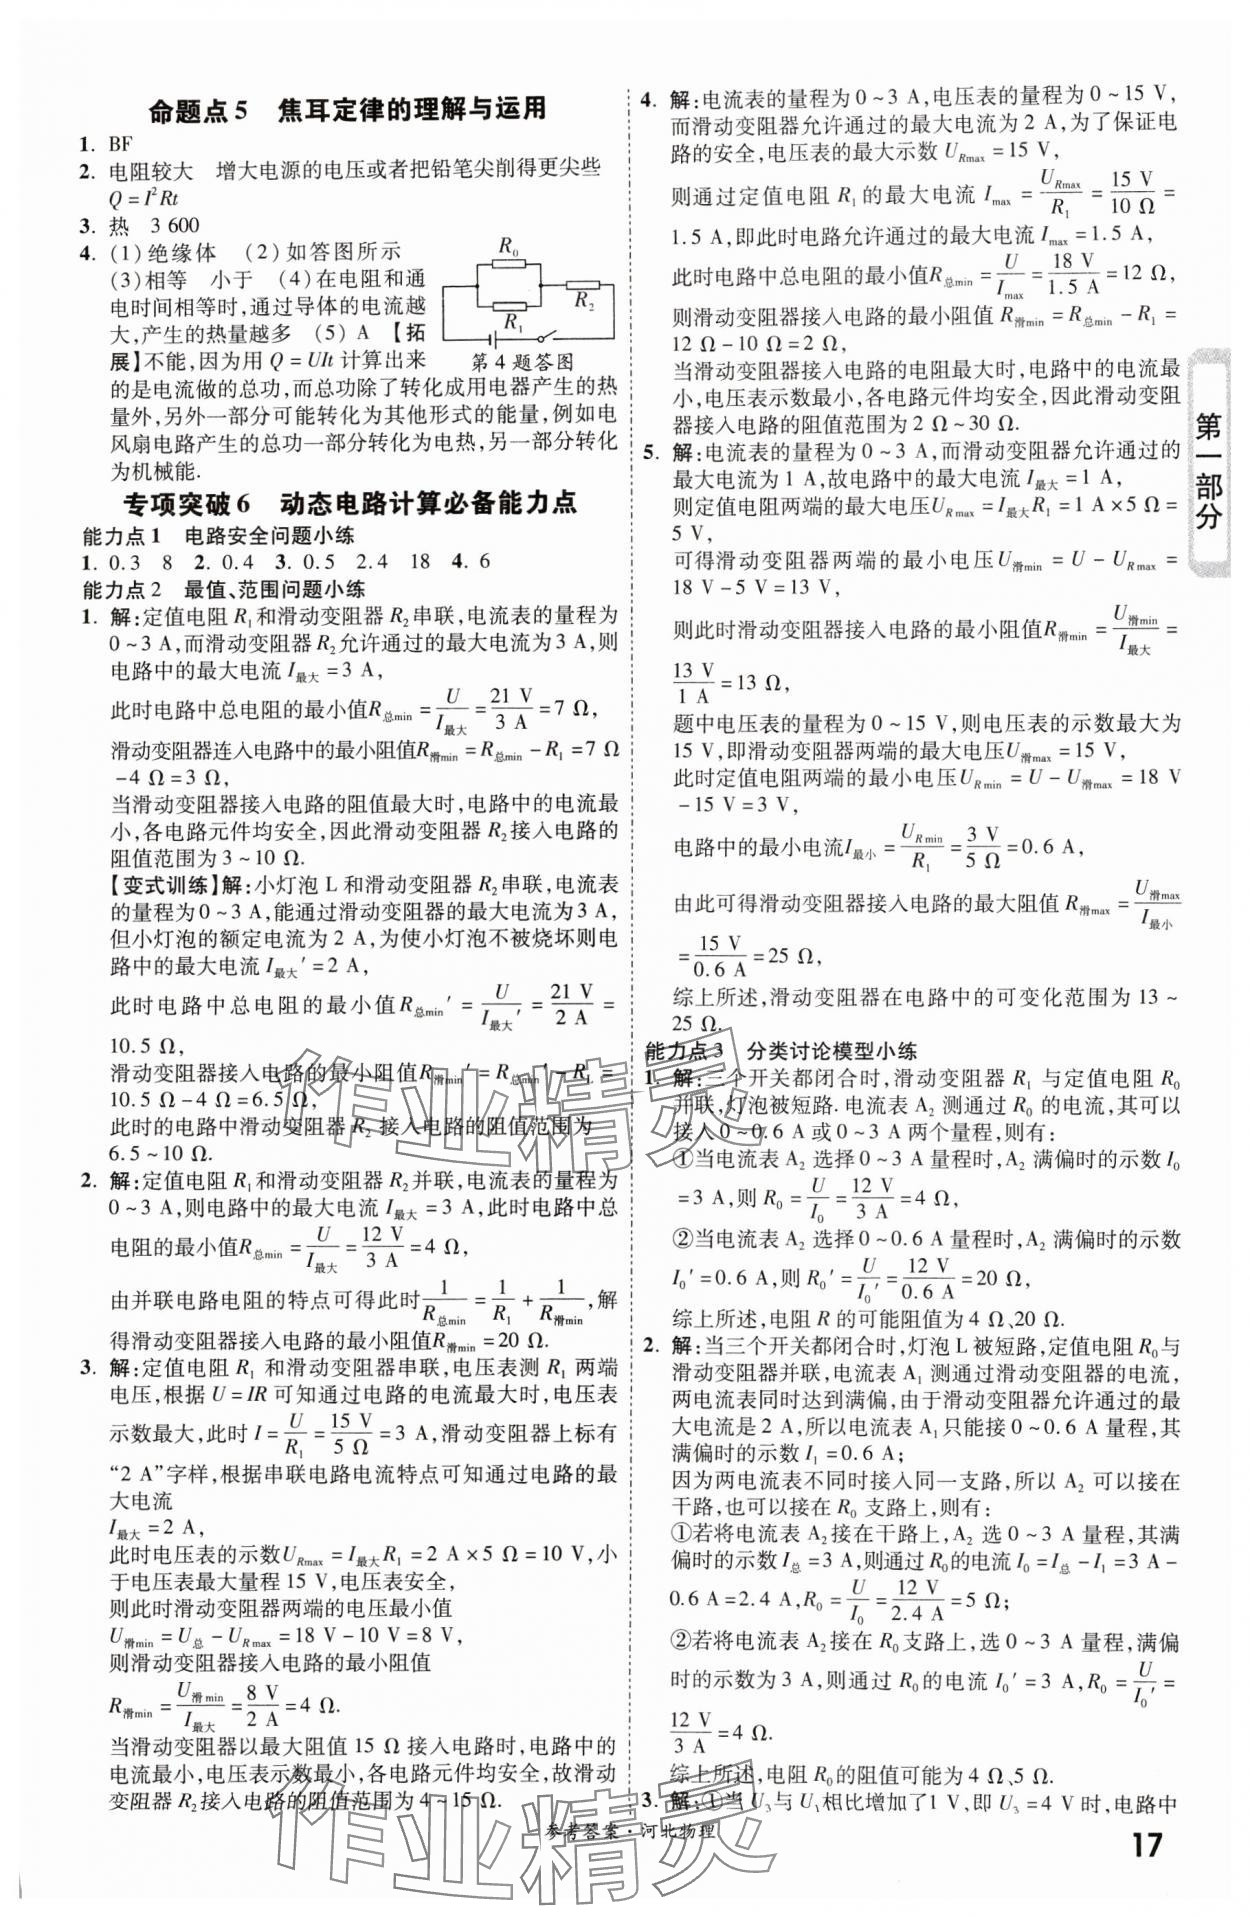 命题点5 焦耳定律的理解与运用
1. BF
2. 电阻较大 增大电源的电压或者把铅笔尖削得更尖些
Q=I²Rt
3. 热 3 600
4. (1)绝缘体 (2)如答图所示
(3)相等 小于 (4)在电阻和通
电时间相等时,通过导体的电流越
大,产生的热量越多 (5) A 【拓
展】不能,因为用 Q=UIt 计算出来
R₀
R₂
R₁
第4题答图
的是电流做的总功,而总功除了转化成用电器产生的热
量外,另外一部分可能转化为其他形式的能量,例如电
风扇电路产生的总功一部分转化为电热,另一部分转化
为机械能.
专项突破6 动态电路计算必备能力点
能力点1 电路安全问题小练
1. 0.3 8 2. 0.4 3. 0.5 2.4 18 4. 6
能力点2 最值、范围问题小练
1. 解:定值电阻 R₁和滑动变阻器 R₂串联,电流表的量程为
0~3 A,而滑动变阻器 R₂允许通过的最大电流为3 A,则
电路中的最大电流 I最大=3 A,
此时电路中总电阻的最小值R总min=U/I最大=21 V/3 A=7 Ω,
滑动变阻器连入电路中的最小阻值R滑min=R总min-R₁=7 Ω
-4 Ω=3 Ω,
当滑动变阻器接入电路的阻值最大时,电路中的电流最
小,各电路元件均安全,因此滑动变阻器 R₂接入电路的
阻值范围为 3~10 Ω.
【变式训练】解:小灯泡 L 和滑动变阻器 R₂串联,电流表
的量程为0~3 A,能通过滑动变阻器的最大电流为3 A,
但小灯泡的额定电流为 2 A,为使小灯泡不被烧坏则电
路中的最大电流 I最大′=2 A,
此时电路中总电阻的最小值R总min′=U/I最大′=21 V/2 A=
10.5 Ω,
滑动变阻器接入电路的最小阻值R滑min′=R总min′-R₁=
10.5 Ω-4 Ω=6.5 Ω,
此时的电路中滑动变阻器 R₂ 接入电路的阻值范围为
6.5~10 Ω.
2. 解:定值电阻 R₁和滑动变阻器R₂并联,电流表的量程为
0~3 A,则电路中的最大电流 I最大=3 A,此时电路中总
电阻的最小值R总min=U/I最大=12 V/3 A=4 Ω,
由并联电路电阻的特点可得此时1/R总min=1/R₁+1/R滑min,解
得滑动变阻器接入电路的最小阻值R滑min=20 Ω.
3. 解:定值电阻 R₁ 和滑动变阻器串联,电压表测 R₁ 两端
电压,根据 U=IR 可知通过电路的电流最大时,电压表
示数最大,此时 I=U/R₁=15 V/5 Ω=3 A,滑动变阻器上标有
“2 A”字样,根据串联电路电流特点可知通过电路的最
大电流
I最大=2 A,
此时电压表的示数URmax=I最大R₁=2 A×5 Ω=10 V,小
于电压表最大量程 15 V,电压表安全,
则此时滑动变阻器两端的电压最小值
U滑min=U总-URmax=18 V-10 V=8 V,
则滑动变阻器接入电路的最小阻值
R滑min=U滑min/I最大=8 V/2 A=4 Ω.
当滑动变阻器以最大阻值 15 Ω 接入电路时,电路中的
电流最小,电压表示数最小,各电路元件均安全,故滑动
变阻器 R₂接入电路的阻值范围为 4~15 Ω.
4. 解:电流表的量程为0~3 A,电压表的量程为0~15 V,
而滑动变阻器允许通过的最大电流为2 A,为了保证电
路的安全,电压表的最大示数 URmax=15 V,
则通过定值电阻 R₁的最大电流 Imax=URmax/R₁=15 V/10 Ω=
1.5 A,即此时电路允许通过的最大电流Imax=1.5 A,
此时电路中总电阻的最小值R总min=U/Imax=18 V/1.5 A=12 Ω,
则滑动变阻器接入电路的最小阻值 R滑min=R总min-R₁=
12 Ω-10 Ω=2 Ω,
当滑动变阻器接入电路的电阻最大时,电路中的电流最
小,电压表示数最小,各电路元件均安全,因此滑动变阻
器接入电路的阻值范围为2 Ω~30 Ω.
5. 解:电流表的量程为0~3 A,而滑动变阻器允许通过的
最大电流为1 A,故电路中的最大电流 I最大=1 A,
则定值电阻两端的最大电压URmax=I最大R₁=1 A×5 Ω=
5 V,
可得滑动变阻器两端的最小电压U滑min=U-URmax=
18 V-5 V=13 V,
则此时滑动变阻器接入电路的最小阻值R滑min=U滑min/I最大=
13 V/1 A=13 Ω,
题中电压表的量程为0~15 V,则电压表的示数最大为
15 V,即滑动变阻器两端的最大电压U滑max=15 V,
此时定值电阻两端的最小电压URmin=U-U滑max=18 V
-15 V=3 V,
电路中的最小电流I最小=URmin/R₁=3 V/5 Ω=0.6 A,
由此可得滑动变阻器接入电路的最大阻值 R滑max=U滑max/I最小
=15 V/0.6 A=25 Ω,
综上所述,滑动变阻器在电路中的可变化范围为 13~
25 Ω.
能力点3 分类讨论模型小练
1. 解:三个开关都闭合时,滑动变阻器 R₁ 与定值电阻 R₀
并联,灯泡被短路.电流表 A₂ 测通过 R₀ 的电流,其可以
接入0~0.6 A或0~3 A两个量程,则有:
①当电流表 A₂ 选择 0~3 A 量程时,A₂ 满偏时的示数 I₀
=3 A,则 R₀=U/I₀=12 V/3 A=4 Ω,
②当电流表 A₂ 选择0~0.6 A 量程时,A₂ 满偏时的示数
I₀′=0.6 A,则 R₀′=U/I₀′=12 V/0.6 A=20 Ω,
综上所述,电阻 R 的可能阻值为 4 Ω、20 Ω.
2. 解:当三个开关都闭合时,灯泡 L 被短路,定值电阻 R₀与
滑动变阻器并联,电流表 A₁ 测通过滑动变阻器的电流,
两电流表同时达到满偏,由于滑动变阻器允许通过的最
大电流是 2 A,所以电流表 A₁只能接 0~0.6 A 量程,其
满偏时的示数 I₁=0.6 A;
因为两电流表不同时接入同一支路,所以 A₂ 可以接在
干路,也可以接在 R₀ 支路上,则有:
①若将电流表 A₂接在干路上,A₂ 选 0~3 A 量程,其满
偏时的示数 I总=3 A,则通过 R₀的电流 I₀=I总-I₁=3 A-
0.6 A=2.4 A,R₀=U/I₀=12 V/2.4 A=5 Ω;
②若将电流表 A₂接在 R₀支路上,选 0~3 A 量程,满偏
时的示数为 3 A,则通过 R₀的电流 I₀′=3 A,R₀=U/I₀′=
12 V/3 A=4 Ω.
综上所述,电阻 R₀的阻值可能为 4 Ω、5 Ω.
3. 解:①当 U₃与 U₁相比增加了1 V,即 U₃=4 V时,电路中
第一部分
参考答案·河北物理
17
作业精灵
作业精灵